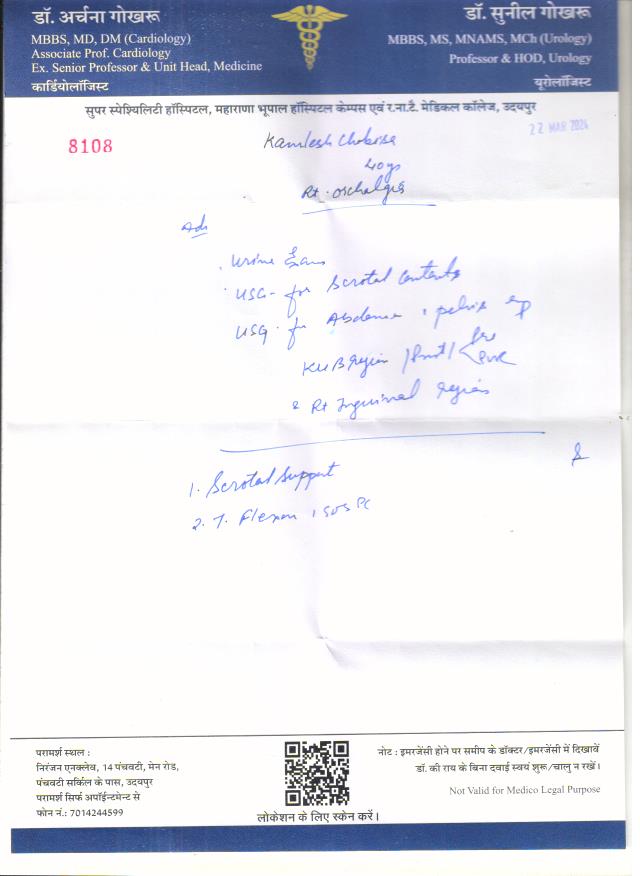 डॉ. अर्चना गोखरू
MBBS, MD, DM (Cardiology)
Associate Prof. Cardiology
Ex. Senior Professor & Unit Head, Medicine
कार्डियोलॉजिस्ट
डॉ. सुनील गोखरू
MBBS, MS, MNAMS, MCh (Urology)
Professor & HOD, Urology
यूरोलॉजिस्ट
सुपर स्पेश्यिलिटी हॉस्पिटल, महाराणा भूपाल हॉस्पिटल केम्पस एवं र.ना.टै. मेडिकल कॉलेज, उदयपुर
8108
22 MAR 2024
Kamlesh
40 ys
Rt. Orchalgia
Adv
Urine Exam
USG- for Scrotal Contents
USG for Abdomen & pelvis
KUB region / Prost / Pre PVR
& Rt Inguinal region
1. Scrotal Support
2. T. Flexon 1 SOS PC
परामर्श स्थल :
निरंजन एनक्लेव, 14 पंचवटी, मेन रोड,
पंचवटी सर्किल के पास, उदयपुर
परामर्श सिर्फ अपॉईन्टमेन्ट से
फोन नं.: 7014244599
लोकेशन के लिए स्केन करें।
नोट : इमरजेंसी होने पर समीप के डॉक्टर/इमरजेंसी में दिखावें
डॉ. की राय के बिना दवाई स्वयं शुरू/चालु न रखें।
Not Valid for Medico Legal Purpose